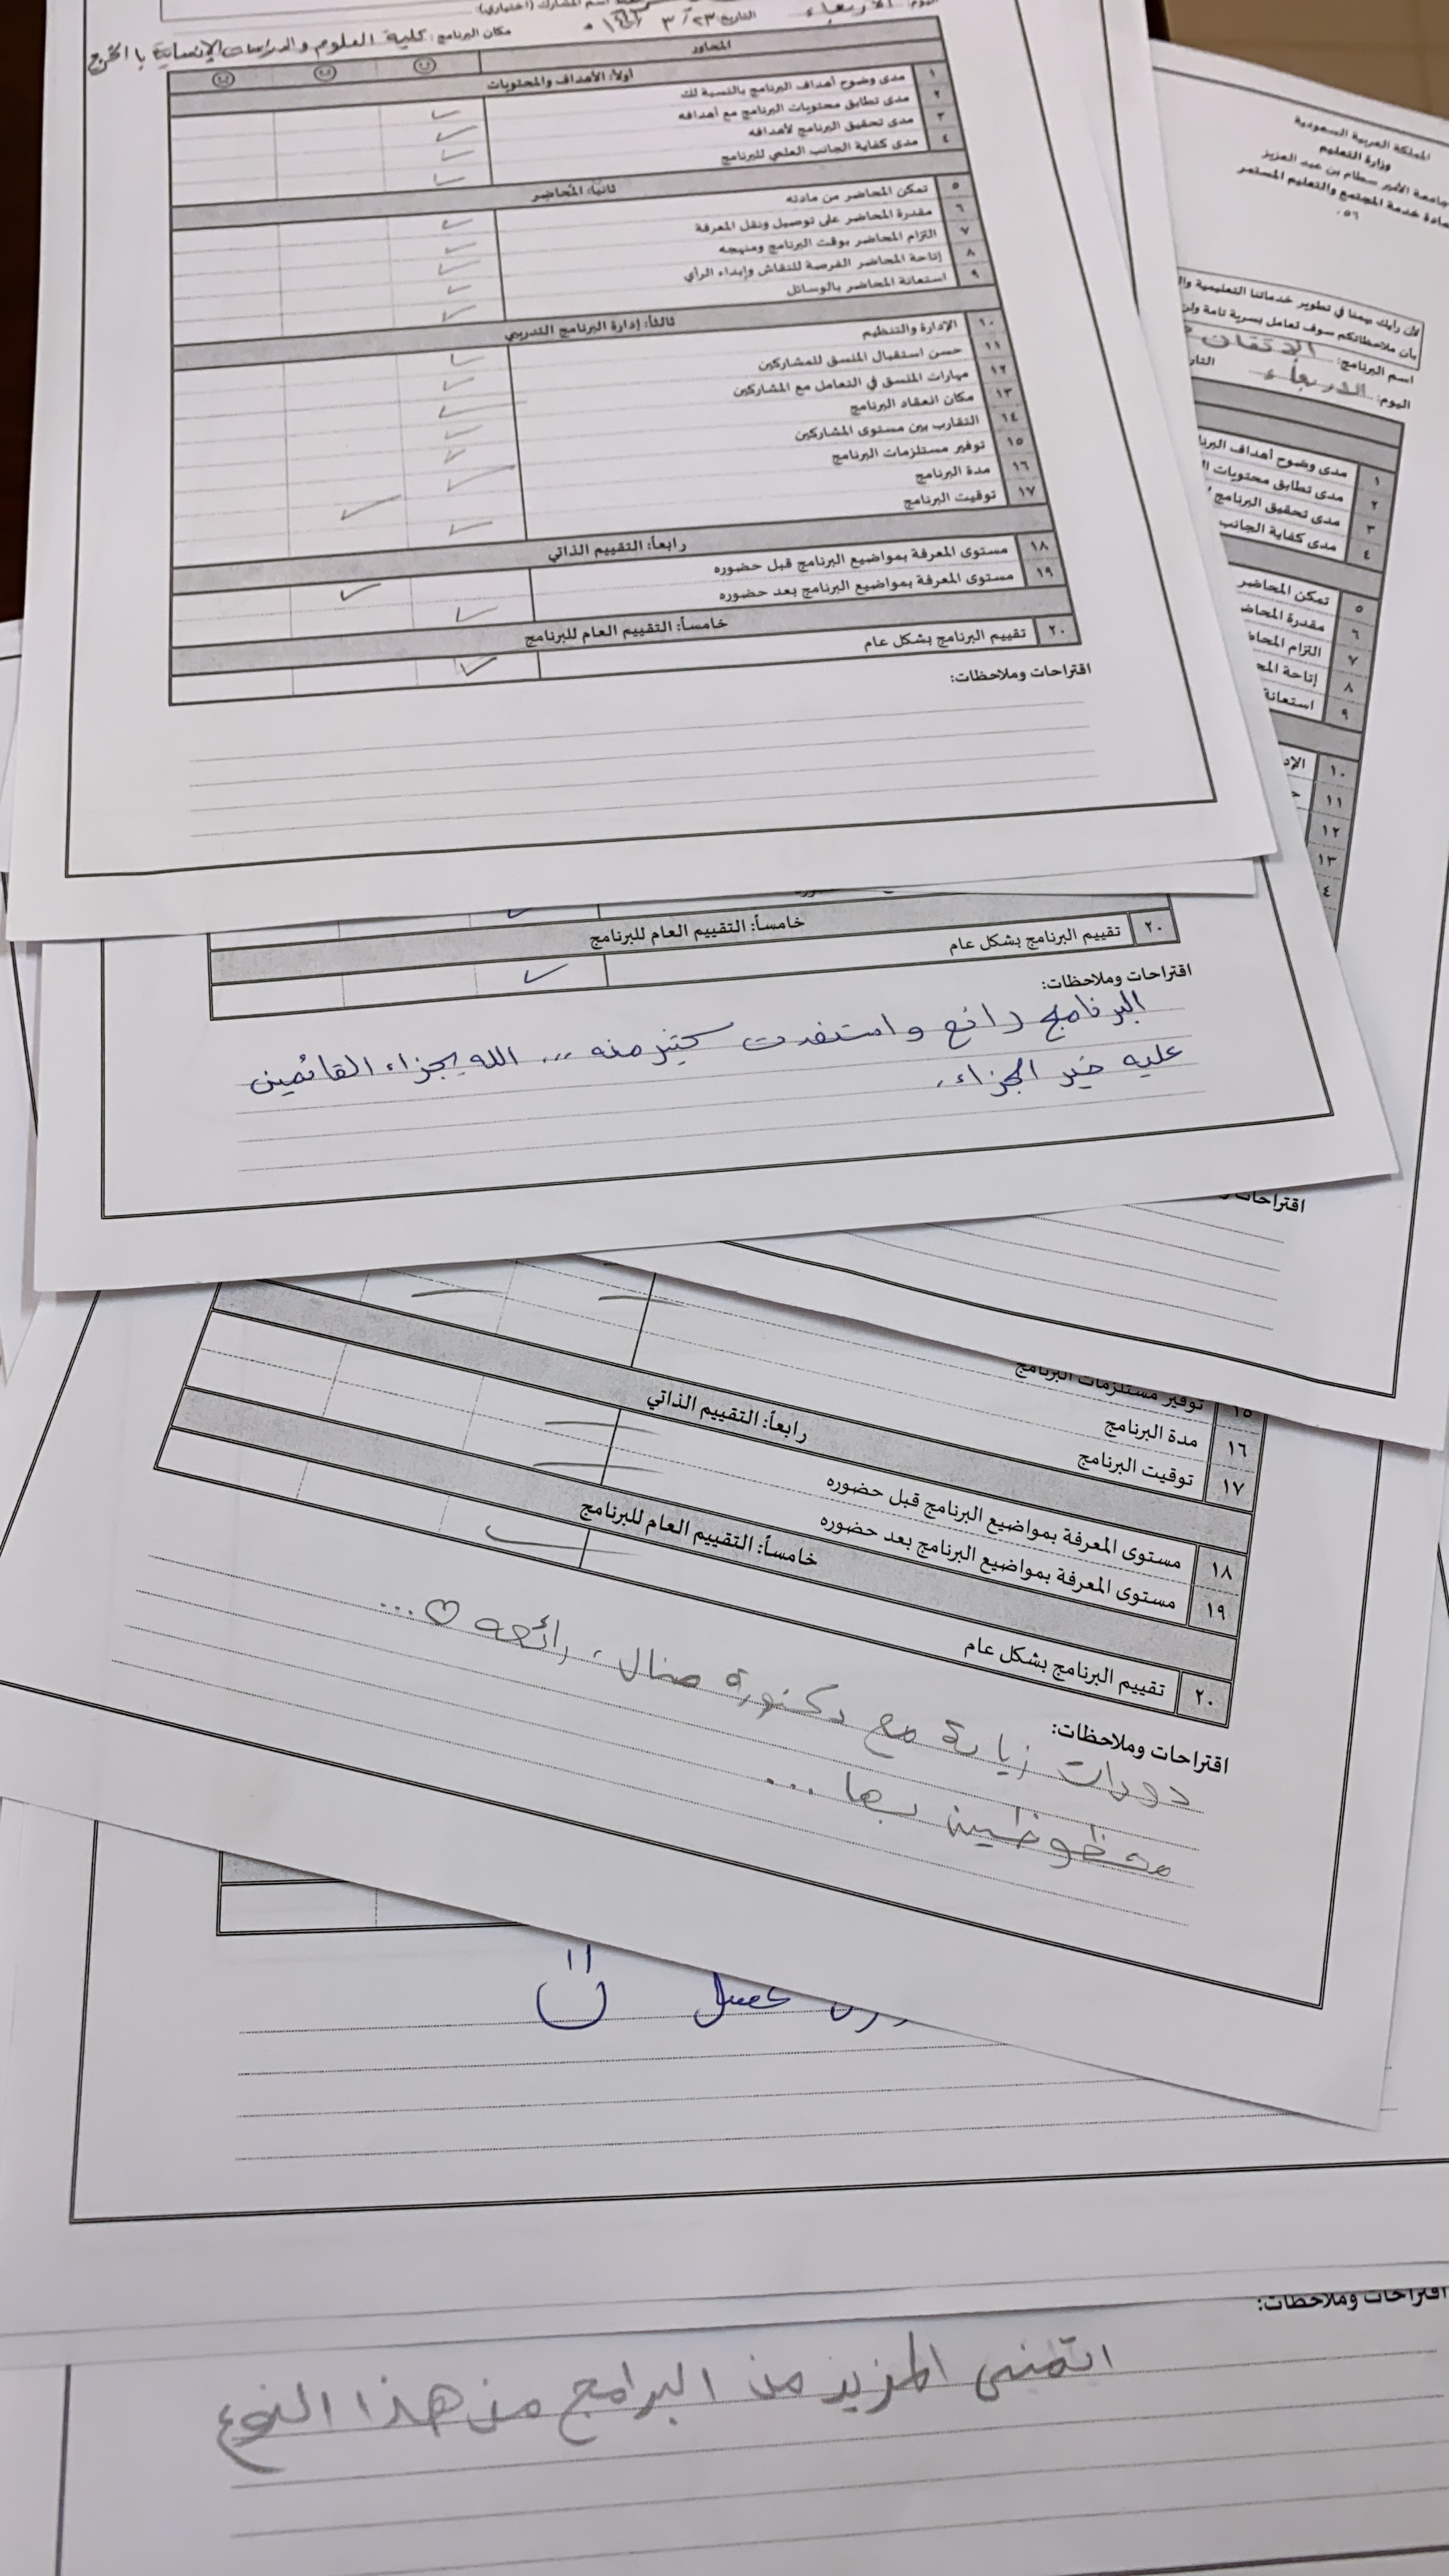 مكان البرنامج: كلية العلوم والدراسات الإنسانية بالخرج
المحاور
أولاً: الأهداف والمحتويات
١ مدى وضوح أهداف البرنامج بالنسبة لك
٢ مدى تطابق محتويات البرنامج مع أهدافه
٣ مدى تحقيق البرنامج لأهدافه
٤ مدى كفاية الجانب العلمي للبرنامج
ثانياً: المحاضر
٥ تمكن المحاضر من مادته
٦ مقدرة المحاضر على توصيل ونقل المعرفة
٧ التزام المحاضر بوقت البرنامج ومنهجه
٨ إتاحة المحاضر الفرصة للنقاش وإبداء الرأي
٩ استعانة المحاضر بالوسائل
ثالثاً: إدارة البرنامج التدريبي
١٠ الإدارة والتنظيم
١١ حسن استقبال المنسق للمشاركين
١٢ مهارات المنسق في التعامل مع المشاركين
١٣ مكان انعقاد البرنامج
١٤ التقارب بين مستوى المشاركين
١٥ توفير مستلزمات البرنامج
١٦ مدة البرنامج
١٧ توقيت البرنامج
رابعاً: التقييم الذاتي
١٨ مستوى المعرفة بمواضيع البرنامج قبل حضوره
١٩ مستوى المعرفة بمواضيع البرنامج بعد حضوره
خامساً: التقييم العام للبرنامج
٢٠ تقييم البرنامج بشكل عام
اقتراحات وملاحظات:
المملكة العربية السعودية
وزارة التعليم
جامعة الأمير سطام بن عبد العزيز
خدمة المجتمع والتعليم المستمر
لأن رأيك مهمنا في تطوير خدماتنا التعليمية
بأن ملاحظاتكم سوف تعامل بسرية تامة
اسم البرنامج: الاتقان
اليوم: الاربعاء
١ مدى وضوح أهداف
٢ مدى تطابق محتويات
٣ مدى تحقيق البرنامج
٤ مدى كفاية الجانب
٥ تمكن المحاضر
٦ مقدرة
٧ التزام
٨ إتاحة
٩ استعانة
١٠
١١
١٢
١٣
خامساً: التقييم العام للبرنامج
٢٠ تقييم البرنامج بشكل عام
اقتراحات وملاحظات:
البرنامج رائع واستفدت كثير منه ... الله يجزاء القائمين
عليه خير الجزاء.
اقتراحات
١٥ توفير مستلزمات البرنامج
١٦ مدة البرنامج
١٧ توقيت البرنامج
رابعاً: التقييم الذاتي
١٨ مستوى المعرفة بمواضيع البرنامج قبل حضوره
١٩ مستوى المعرفة بمواضيع البرنامج بعد حضوره
خامساً: التقييم العام للبرنامج
٢٠ تقييم البرنامج بشكل عام
اقتراحات وملاحظات:
دورات زيادة مع دكتورة منال، رائعه ♡...
محظوظين بها ...
اقتراحات وملاحظات:
اتمنى المزيد من البرامج من هذا النوع